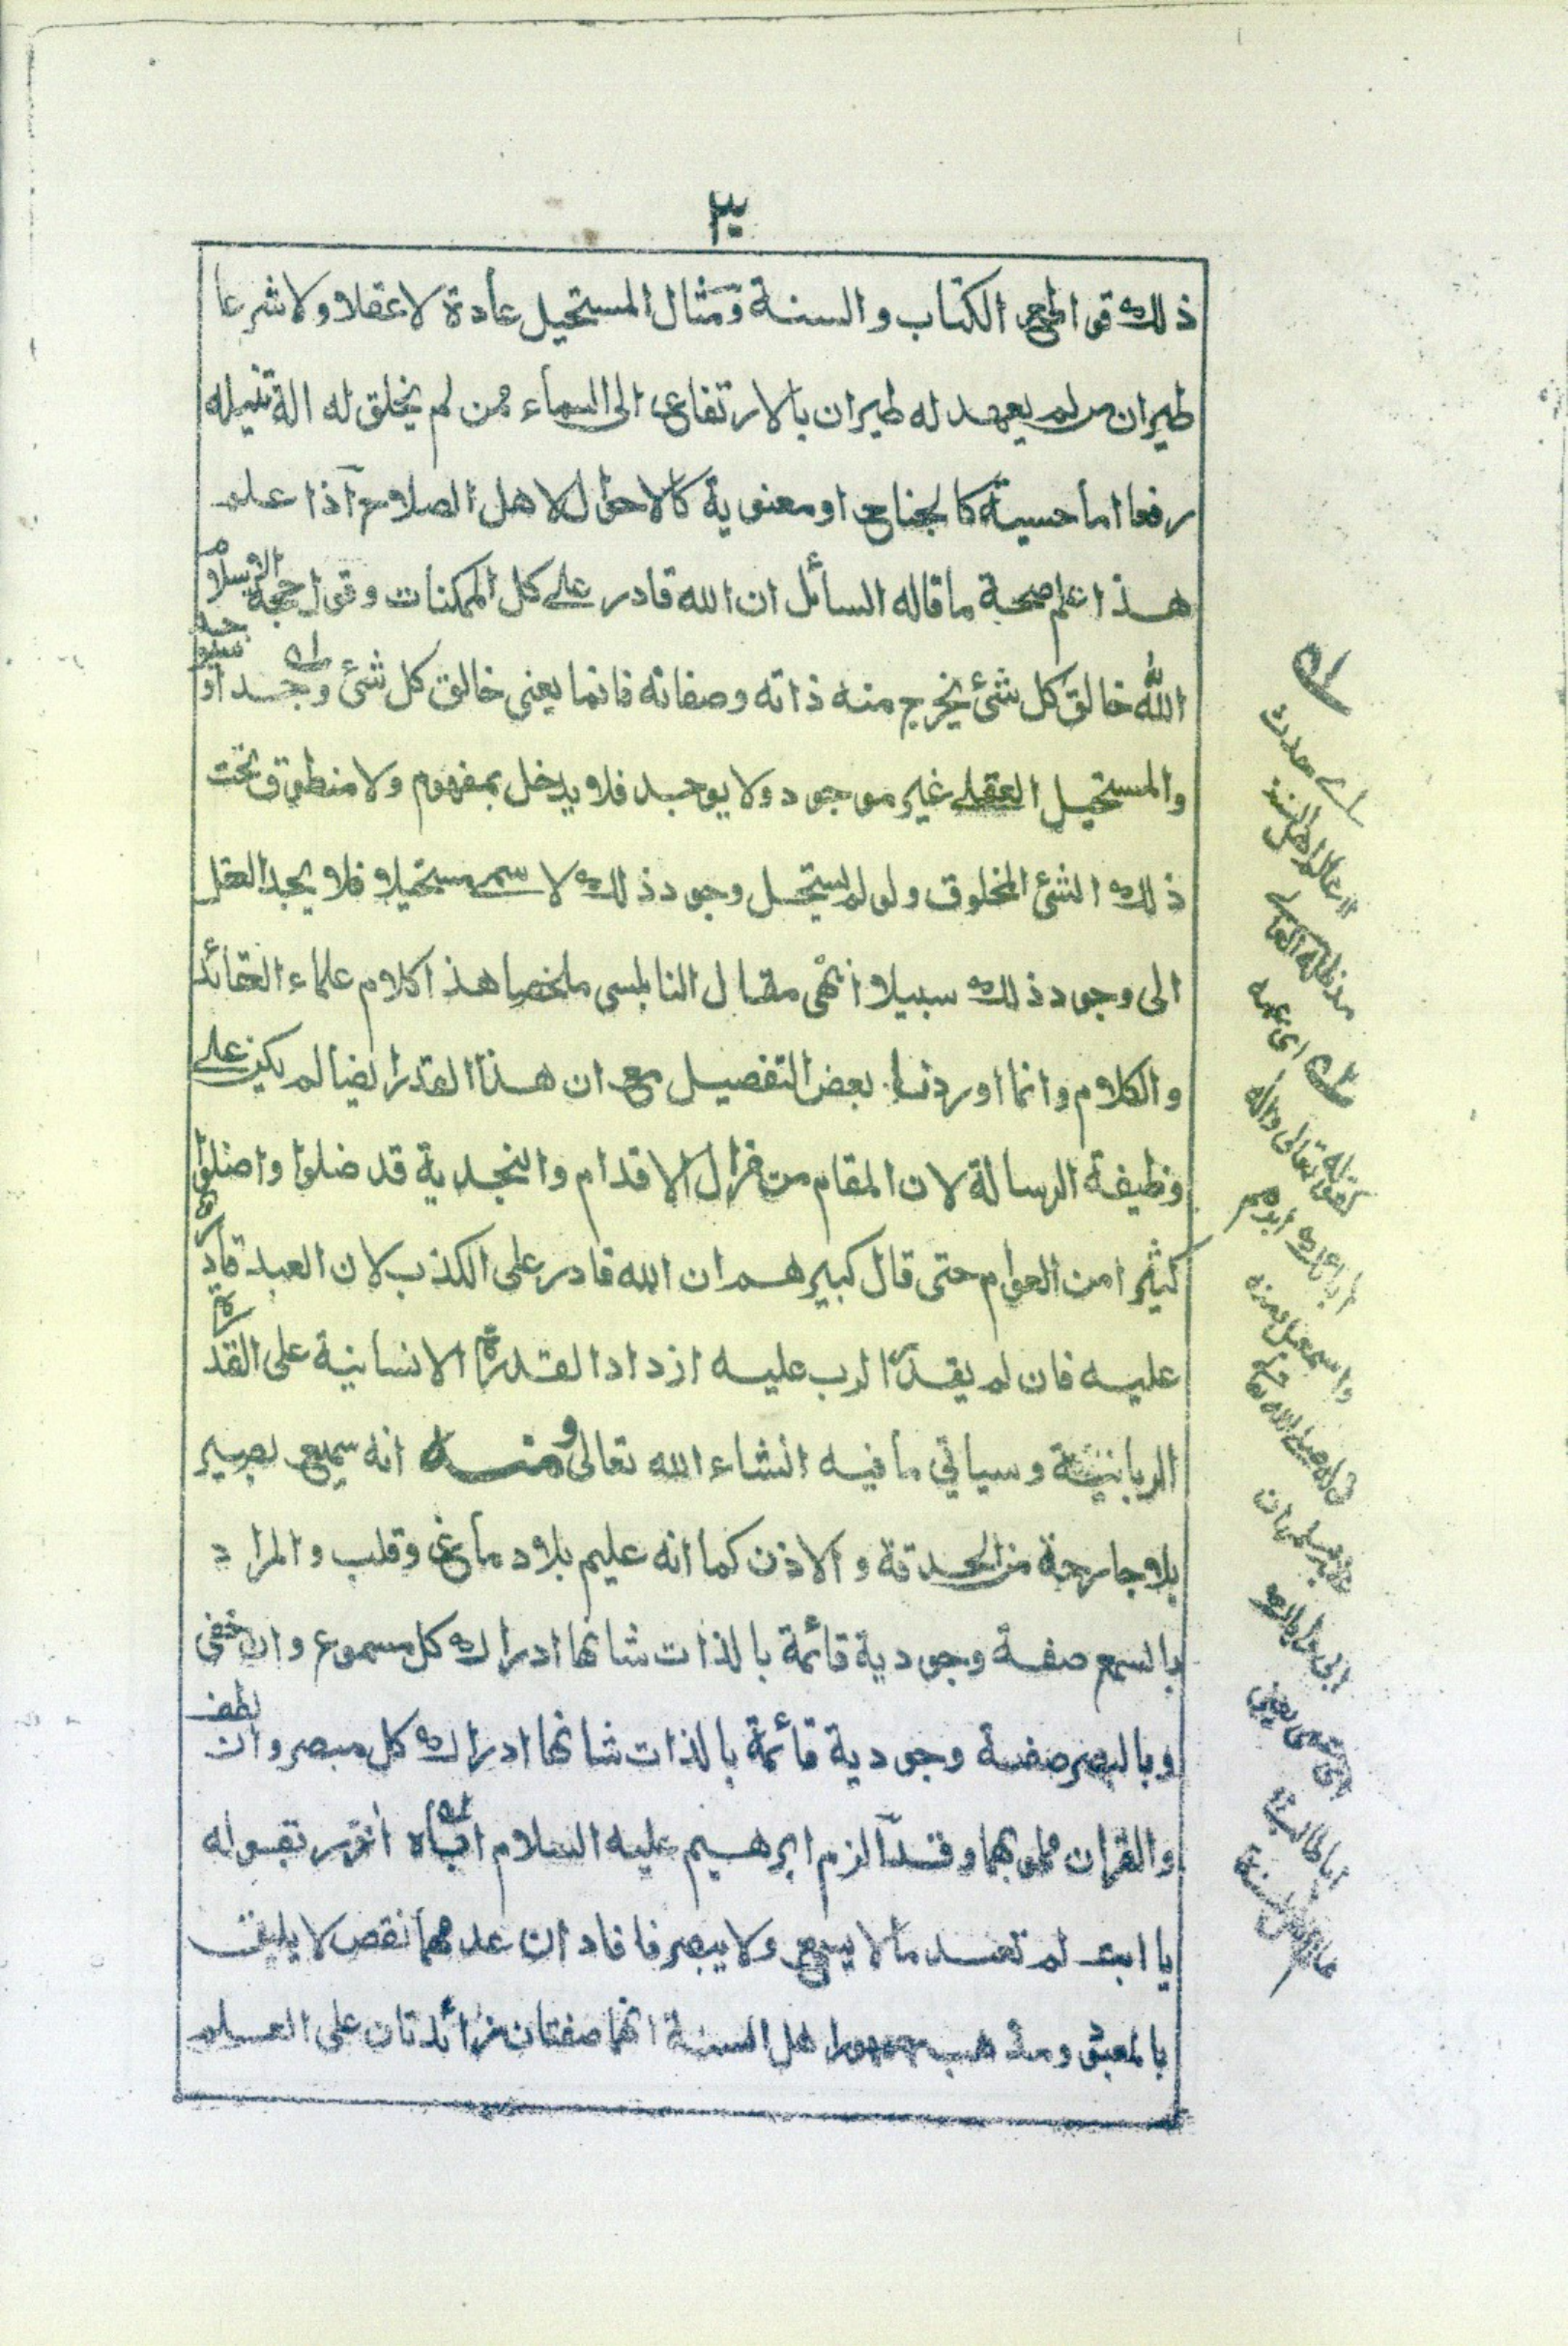 ٣٠
ذلك قواطع الكتاب والسنة ومثال المستحيل عادة لاعقلا ولاشرعا
طيران من لم يعهد له طيران بالارتفاع الى السماء ممن لم يخلق له الة تنيله
رفعا اما حسية كالجناح او معنوية كالاحوال لاهل الصلاح آذا علم
هذا علم صحة ما قاله السائل ان الله قادر على كل الممكنات وقول حجة الاسلام
الله خالق كل شئ يخرج منه ذاته وصفاته فانما يعنى خالق كل شئ وجد او سيوجد
والمستحيل العقلے غير موجود ولا يوجد فلا يدخل بمفهوم ولا منطوق تحت
ذلك الشئ المخلوق ولو لم يستحل وجود ذلك لا سمے مستحيلا فلا يجد العقل
الى وجود ذلك سبيلا انتهى مقال النابلسى ملخصا هذا كلام علماء العقائد
والكلام وانما اوردنا بعض التفصيل مع ان هذا القدر ايضا لم يكن علے
وظيفة الرسالة لان المقام من مزال الاقدام والنجدية قد ضلوا واضلوا
كثيرا من العوام حتى قال كبيرهم ان الله قادر على الكذب لان العبد قادر
عليه فان لم يقدر الرب عليه ازداد القدرة الانسانية على القدرة
الربانية وسياتي ما فيه انشاء الله تعالى ومنه انه سميع بصير
بلا جارحة من الحدقة والاذن كما انه عليم بلا دماغ وقلب والمراد
بالسمع صفة وجودية قائمة بالذات شانها ادراك كل مسموع وان خفى
وبالبصر صفة وجودية قائمة بالذات شانها ادراك كل مبصر وان لطف
والقران مملو بهما وقد آلزم ابرهيم عليه السلام اباه ازر بقوله
يا ابت لم تعبد ما لا يسمع ولا يبصر فافاد ان عدمهما نقص لا يليق
بالمعبود ومذهب اهل السنة انهما صفتان زائدتان على العلم
عالم اهل السنة
مدظله العالے
اى عمه
كقوله تعالى واله
آبائك ابرهيم
واسمعيل